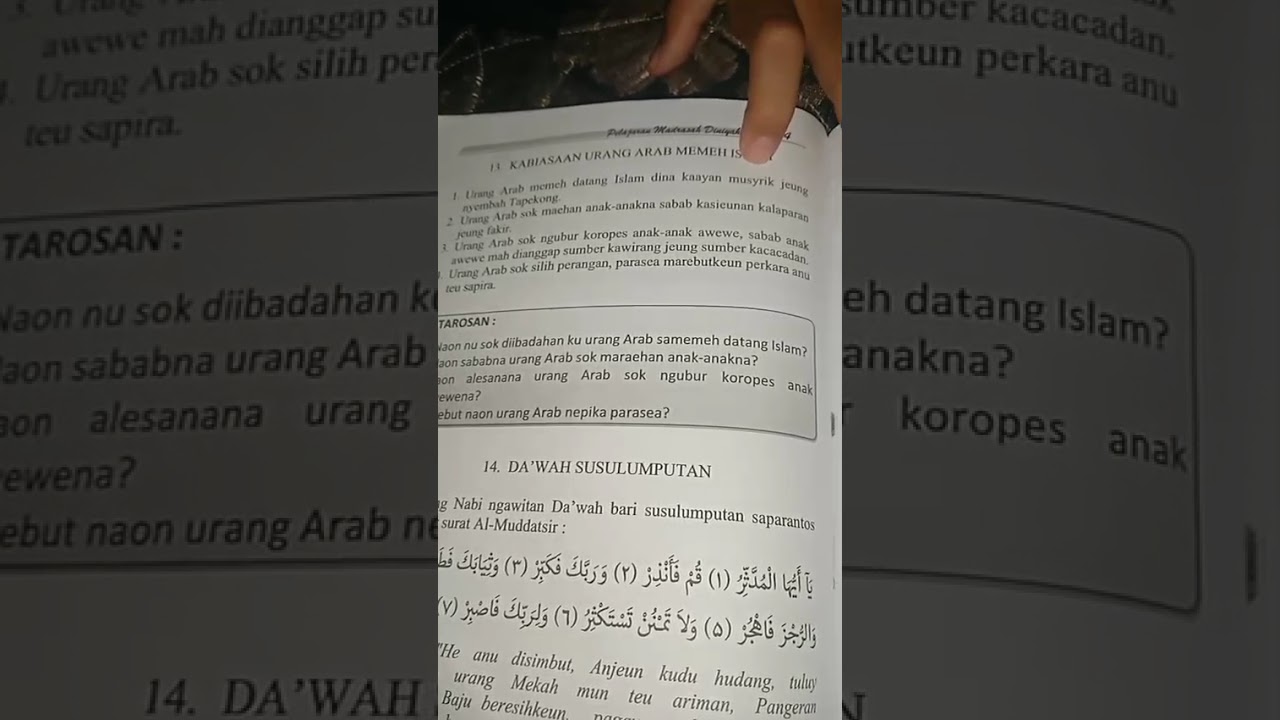 Pelajaran Madrasah Diniyah 4
13. KABIASAAN URANG ARAB MEMEH
1. Urang Arab memeh datang Islam dina kaayan musyrik jeung
nyembah Tapekong.
2. Urang Arab sok maehan anak-anakna sabab kasieunan kalaparan
jeung fakir.
3. Urang Arab sok ngubur koropes anak-anak awewe, sabab anak
awewe mah dianggap sumber kawirang jeung sumber kacacadan.
Urang Arab sok silih perangan, parasea marebutkeun perkara anu
teu sapira.
TAROSAN :
Naon nu sok diibadahan ku urang Arab samemeh datang Islam?
aon sababna urang Arab sok maraehan anak-anakna?
aon alesanana urang Arab sok ngubur koropes anak
ewena?
ebut naon urang Arab nepika parasea?
14. DA'WAH SUSULUMPUTAN
g Nabi ngawitan Da'wah bari susulumputan saparantos
surat Al-Muddatsir :
يَآ أَيُّهَا الْمُدَّثِّرُ (١) قُمْ فَأَنْذِرْ (٢) وَرَبَّكَ فَكَبِّرْ (٣) وَثِيَابَكَ فَطَ
وَالرُّجْزَ فَاهْجُرْ (٥) وَلاَ تَمْنُنْ تَسْتَكْثِرُ (٦) وَلِرَبِّكَ فَاصْبِرْ (٧)
"He anu disimbut, Anjeun kudu hudang, tuluy
urang Mekah mun teu ariman, Pangeran
Baju beresihkeun,